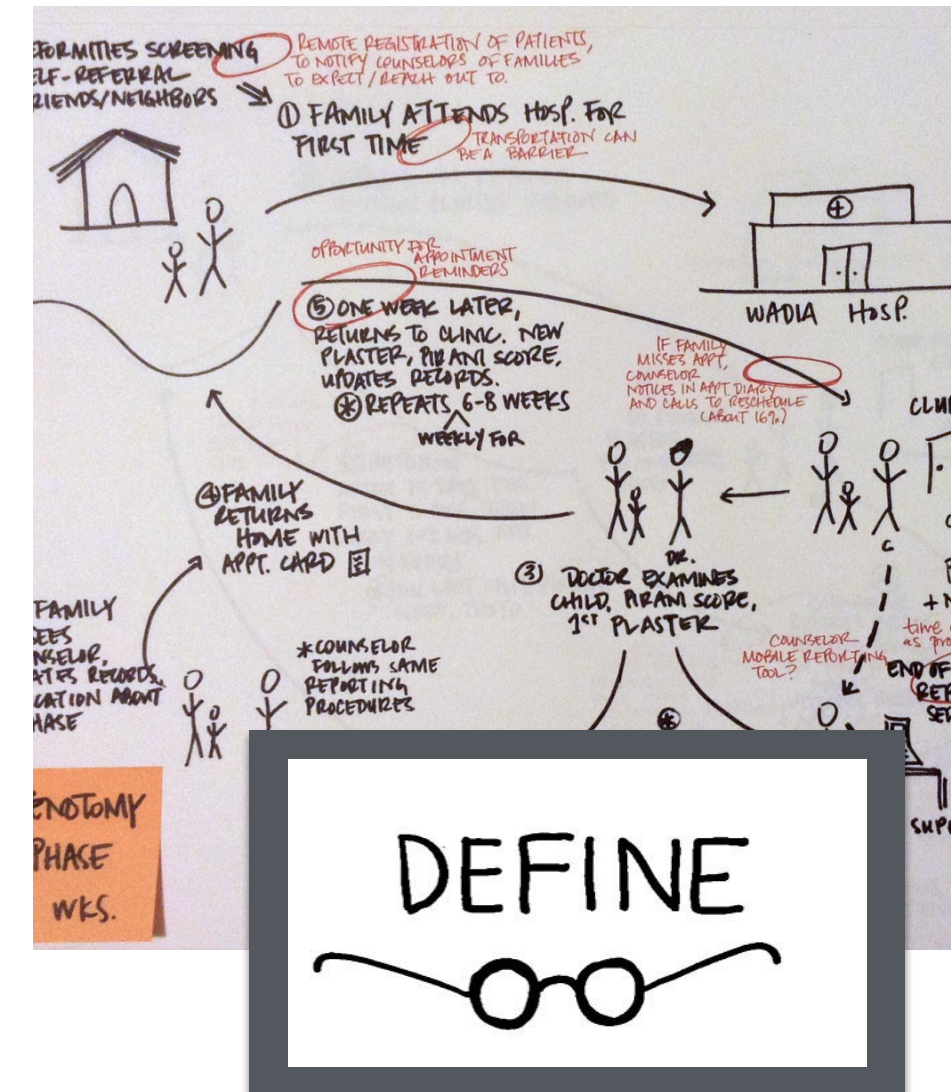 FORMITIES SCREENING
ELF-REFERRAL
RIENDS/NEIGHBORS
REMOTE REGISTRATION OF PATIENTS,
TO NOTIFY COUNSELORS OF FAMILIES
TO EXPECT/REACH OUT TO.
① FAMILY ATTENDS HOSP. FOR
FIRST TIME
TRANSPORTATION CAN
BE A BARRIER
WADIA HOSP.
OPPORTUNITY FOR
APPOINTMENT
REMINDERS
⑤ ONE WEEK LATER,
RETURNS TO CLINIC. NEW
PLASTER, PIRANI SCORE,
UPDATES RECORDS.
* REPEATS 6-8 WEEKS
WEEKLY FOR
IF FAMILY
MISSES APPT,
COUNSELOR
NOTICES IN APPT DIARY
AND CALLS TO RESCHEDULE
(ABOUT 16%)
④ FAMILY
RETURNS
HOME WITH
APPT. CARD
DR.
C
③ DOCTOR EXAMINES
CHILD, PIRANI SCORE,
1ST PLASTER
FAMILY
EES
NSELOR,
ATES RECORDS,
CATION ABOUT
HASE
* COUNSELOR
FOLLOWS SAME
REPORTING
PROCEDURES
COUNSELOR
MOBILE REPORTING
TOOL?
time
as pro
END OF
*
ENOTOMY
PHASE
WKS.
DEFINE